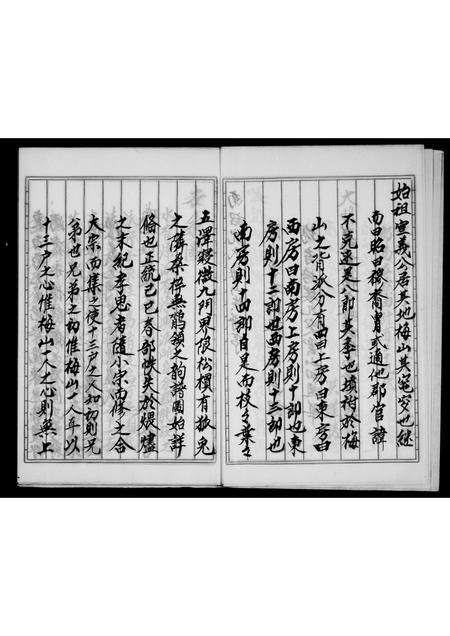 始祖宣義公居其地梅山其窀穸也極
而曰昭曰穆有胄或適他郡官諱
不克還是八郎其季也墳祔於梅
山之背派分有四曰上房曰東房曰
西房曰南房上房則十郎也東
房則十二郎也西房則十三郎也
南房則十四郎自是而枝々葉々
五澤寖微九門界限松檟有狐兔
之憐桑梓無鶺領之韵譜圖始詳
脩也正統己巳春部帙失於煨燼
之末紀孝思者隨小宗而修之合
大宗而集之使十三户之人知初則兄
弟也兄弟之初惟梅山一人耳以
十三户之心惟梅山一人之心則無上